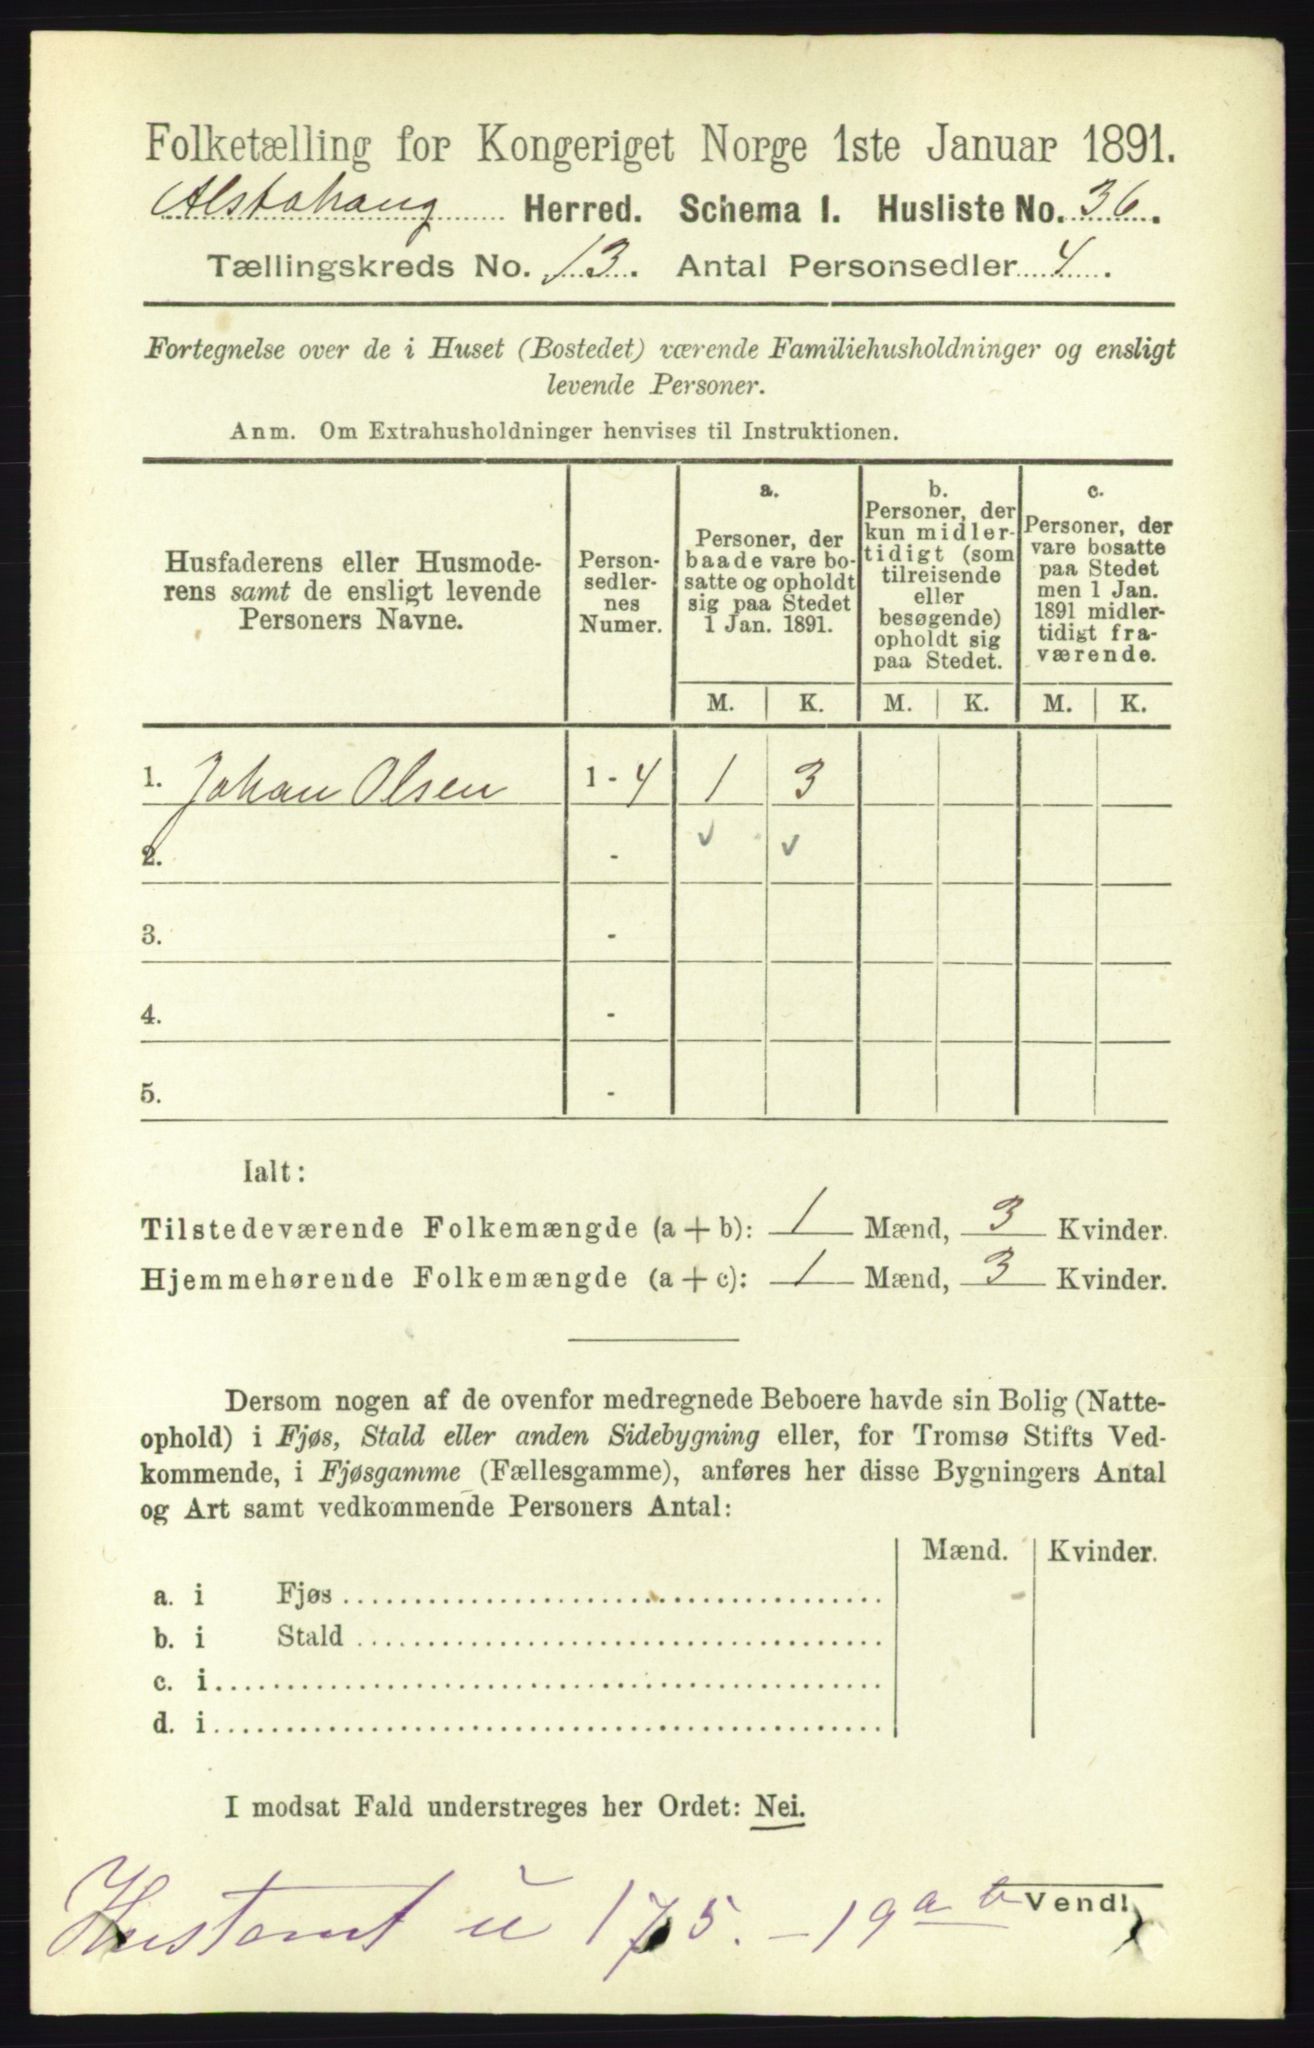 Folketælling for Kongeriget Norge 1ste Januar 1891.
Alstahaug Herred. Schema I. Husliste No. 36.
Tællingskreds No. 13. Antal Personsedler 4.
Fortegnelse over de i Huset (Bostedet) værende Familiehusholdninger og ensligt
levende Personer.
Anm. Om Extrahusholdninger henvises til Instruktionen.
Husfaderens eller Husmode-
rens samt de ensligt levende
Personers Navne.
Person-
sedler-
nes
Numer.
a.
Personer, der
baade vare bo-
satte og opholdt
sig paa Stedet
1 Jan. 1891.
b.
Personer, der
kun midler-
tidigt (som
tilreisende
eller
besøgende)
opholdt sig
paa Stedet.
c.
Personer, der
vare bosatte
paa Stedet
men 1 Jan.
1891 midler-
tidigt fra-
værende.
M. K. M. K. M. K.
1. Johan Olsen 1 - 4 1 3
2. -
3. -
4. -
5. -
Ialt:
Tilstedeværende Folkemængde (a + b): 1 Mænd, 3 Kvinder.
Hjemmehørende Folkemængde (a + c): 1 Mænd, 3 Kvinder.
Dersom nogen af de ovenfor medregnede Beboere havde sin Bolig (Natte-
ophold) i Fjøs, Stald eller anden Sidebygning eller, for Tromsø Stifts Ved-
kommende, i Fjøsgamme (Fællesgamme), anføres her disse Bygningers Antal
og Art samt vedkommende Personers Antal:
Mænd. Kvinder.
a. i Fjøs
b. i Stald
c. i
d. i
I modsat Fald understreges her Ordet: Nei.
Vend!
u 175. - 19 a b